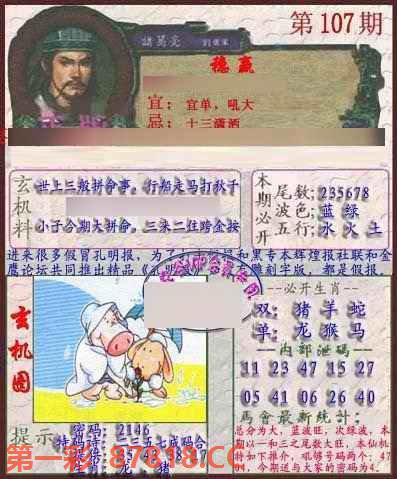 第107期
諸葛亮
穩贏
宜: 宜单,吼大
忌: 十三满洒
玄机料
世上三般拼命事。行船走马打秋千
小子今期大拼命。三来二往跨金按
本期必开
尾数:235678
波色:蓝 绿
五行:水 火 土
进来很多假冒孔明报,为了
和黑专本辉煌报社联和金
鹰论坛共同推出精品
雕刻字版,都是假报。
玄机图
必开生肖
双: 猪 羊 蛇
单: 龙 猴 马
内部泄码
11 23 47 15 27
05 41 06 26 40
馬會最新统计:
总分为大,蓝波旺,次绿波,本
期以一和三之尾数大旺,本仙机
特如下推介,吼够号码两个:47
,今期送大家的密码为4.
提示
密码: 2146
第一彩 87818.CC